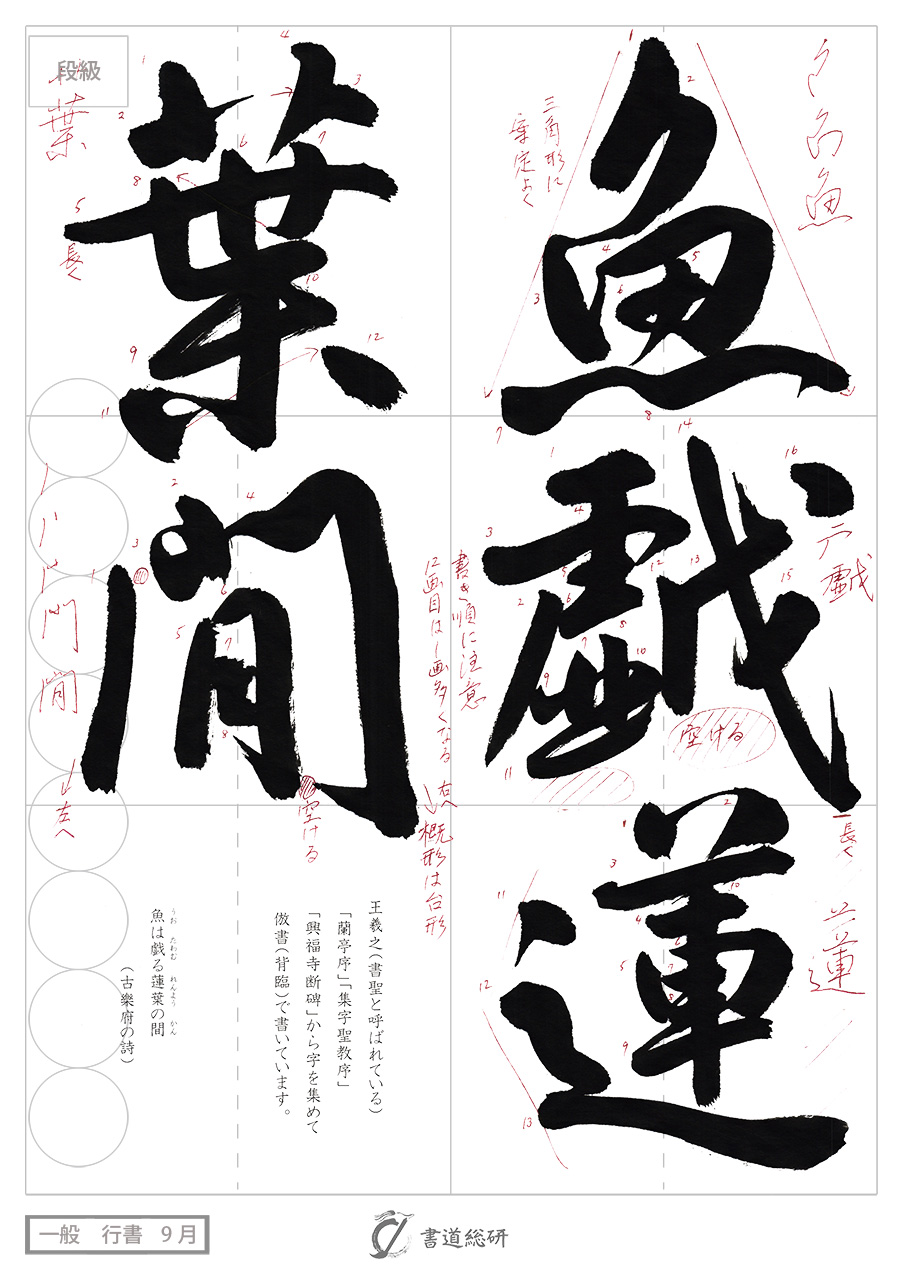 魚戯蓮
葉間
段級
三角形に
安定よく
魚
長く
葉
戯
書き順に注意
に画目は一画多くなる
空ける
長く
蓮
門
間
左へ
空ける
右へ
概形は台形
王羲之(書聖と呼ばれている)
「蘭亭序」「集字聖教序」
「興福寺断碑」から字を集めて
倣書(背臨)で書いています。
魚は戯る蓮葉の間
うお たわむ れんよう かん
(古樂府の詩)
一般 行書 9月
書道総研